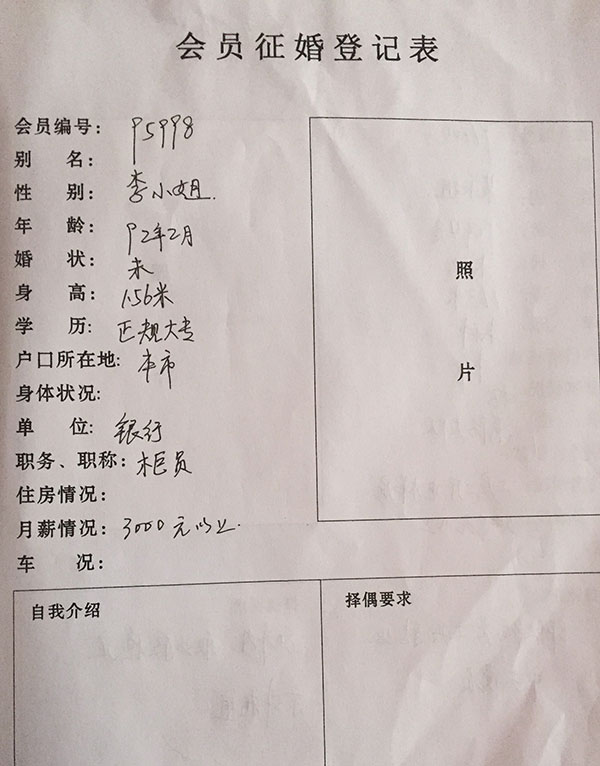 会员征婚登记表
会员编号: P5998
别 名:
性 别: 李小姐.
年 龄: 92年2月
婚 状: 未
身 高: 1.56米
学 历: 正规大专
户口所在地: 本市
身体状况:
单 位: 银行
职务、职称: 柜员
住房情况:
月薪情况: 3000元以上.
车 况:
照
片
自我介绍
择偶要求